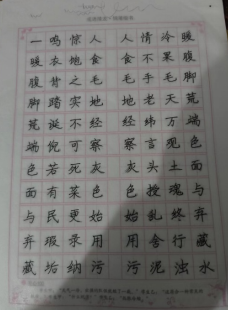 一鸣惊人 人情冷暖
暖衣饱食 食不果腹
腹背之毛 毛手毛脚
脚踏实地 地老天荒
荒诞不经 经纬万端
端倪可察 察言观色
色若死灰 灰头土面
面有菜色 色授魂与
与民更始 始乱终弃
弃瑕录用 用舍行藏
藏垢纳污 污泥浊水